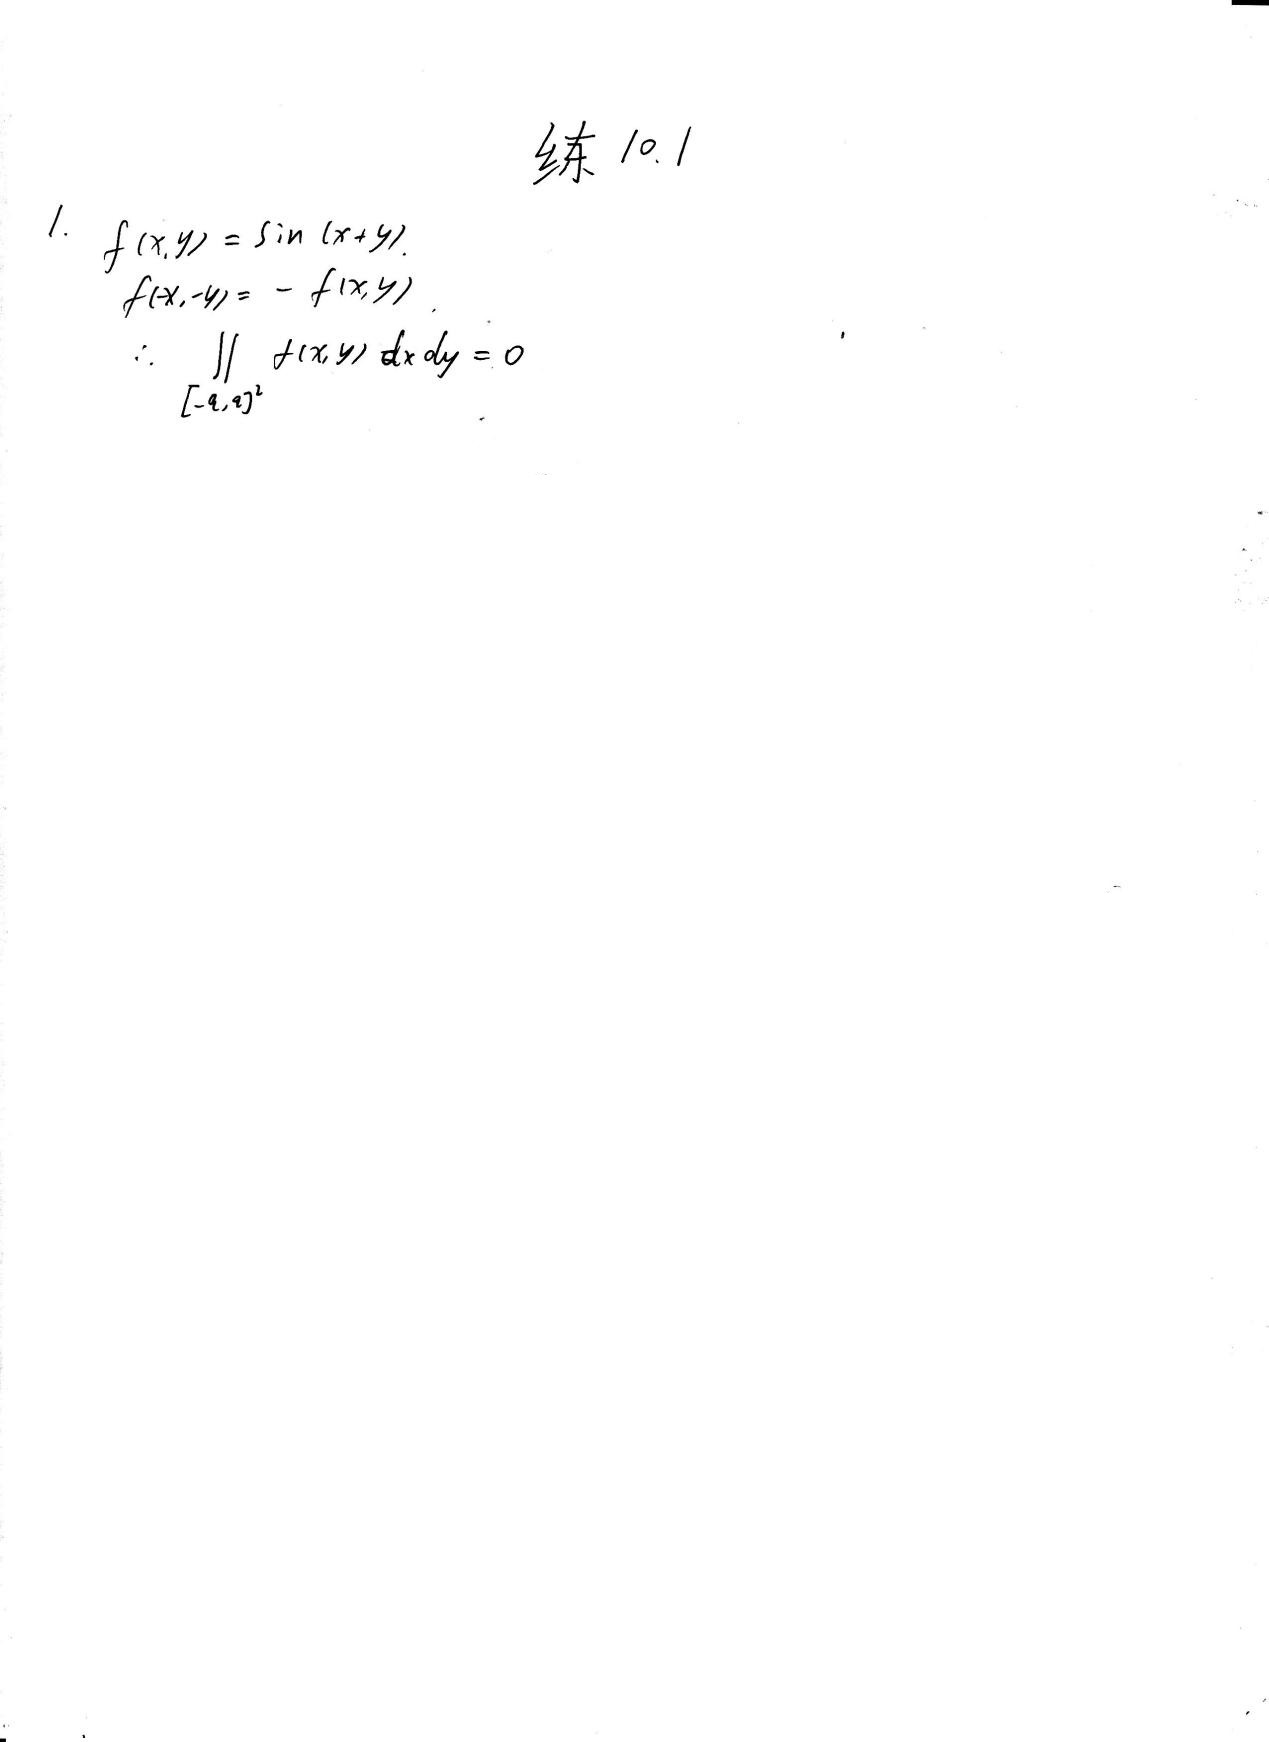 练 10.1
1. f(x,y) = sin (x+y).
f(-x,-y) = - f(x,y).
∴ ∬ f(x,y) dxdy = 0
[-a,a]²